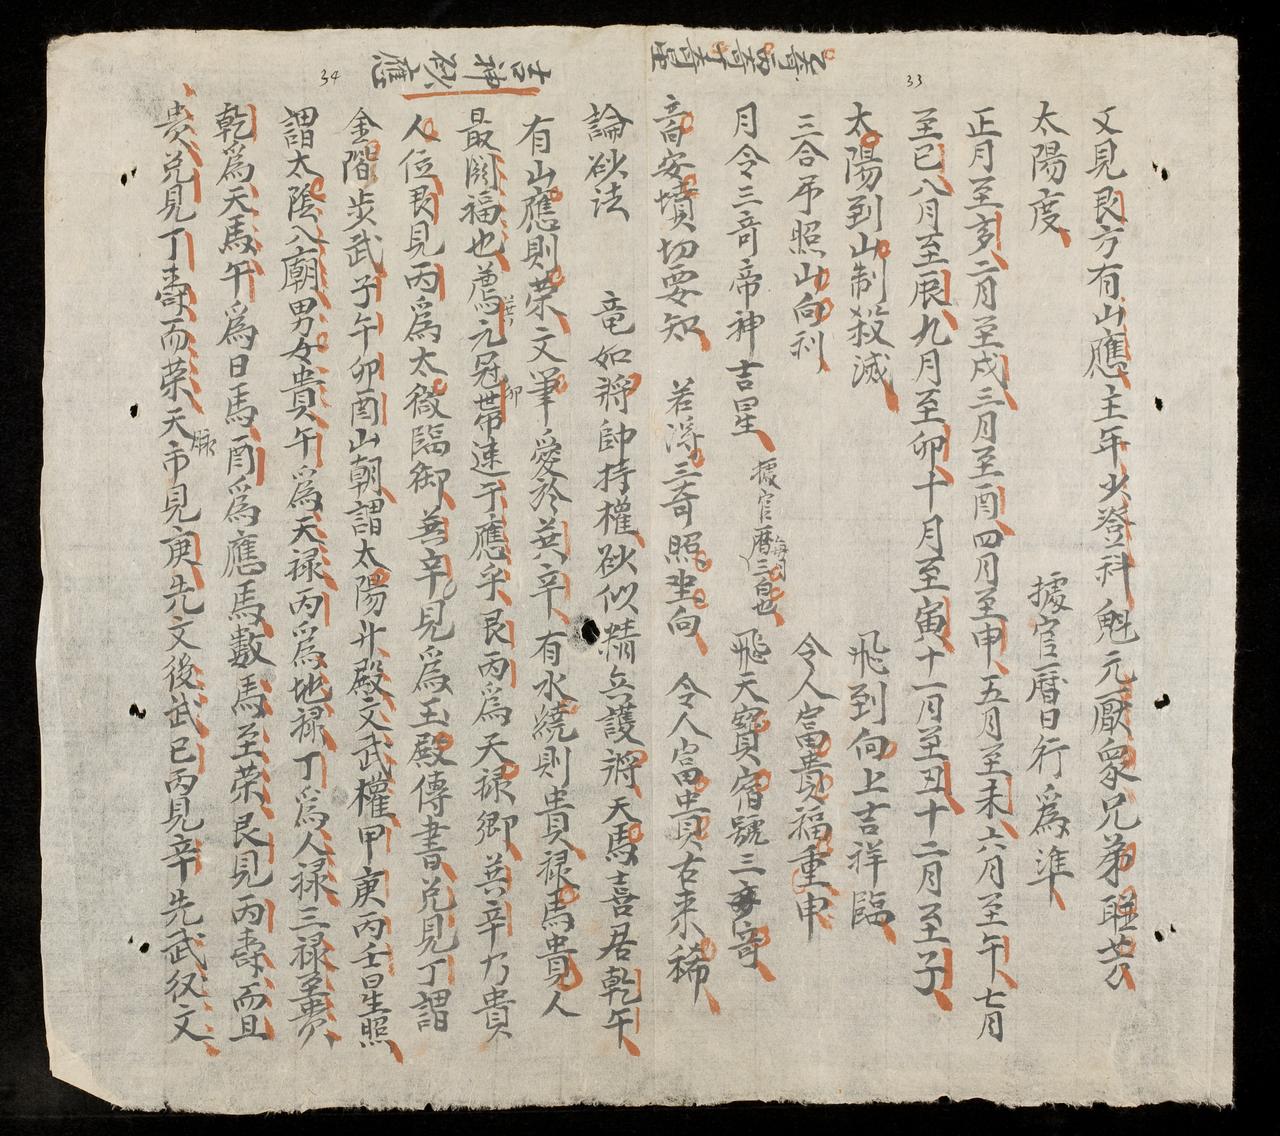 33
乙奇丙奇丁奇星
又見艮方有山應主年少登科魁元厭衆兄弟聯芳
太陽度 據官曆日行為準
正月至亥二月至戌三月至酉四月至申五月至未六月至午七月
至巳八月至辰九月至卯十月至寅十一月至丑十二月至子
太陽到山制殺滅 飛到向上吉祥臨
三合吊照山向利 令人富貴福重申
月令三奇帝神吉星 據官曆每月三白也 飛天寶宿號三奇
音安墳切要知 若得三奇照坐向 令人富貴古來稀
34
吉神砂應
論砂法 竜如將帥持權砂似精兵護將天馬喜君乾午
有山應則荣文筆愛於巽辛有水繞則貴禄馬貴人
最関福也薦元冠帶速于應乎艮丙為天禄卿巽辛乃貴
人位艮見丙為太微臨御巽辛見為玉殿傳書兌見丁謂
金階步武子午卯酉山朝謂太陽升殿文武權甲庚丙壬星照
謂太陰入廟男女貴午為天禄丙為地禄丁為人禄三禄至貴
乾為天馬午為日馬酉為應馬數馬至荣艮見丙壽而且
貴兌見丁壽而荣天市見庚先文後武巳丙見辛先武役文